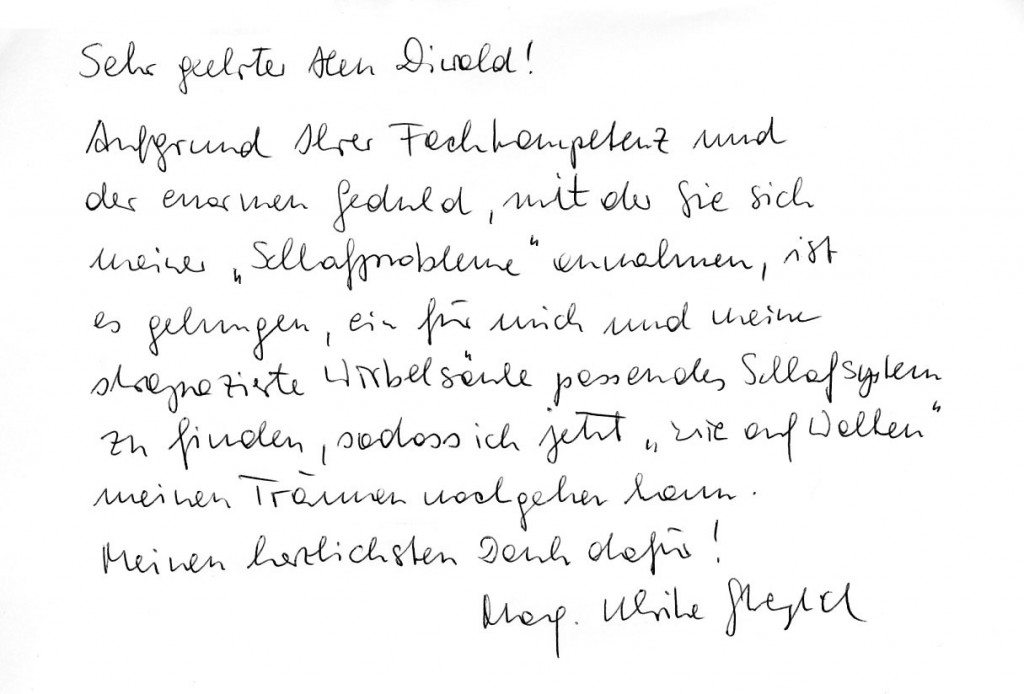 Sehr geehrter Herr Diwald!
Aufgrund Ihrer Fachkompetenz und
der enormen Geduld, mit der Sie sich
meiner „Schlafprobleme“ annahmen, ist
es gelungen, ein für mich und meine
strapazierte Wirbelsäule passendes Schlafsystem
zu finden, sodass ich jetzt „wie auf Wolken“
meinen Träumen nachgehen kann.
Meinen herzlichsten Dank dafür!
Mag. Ulrike